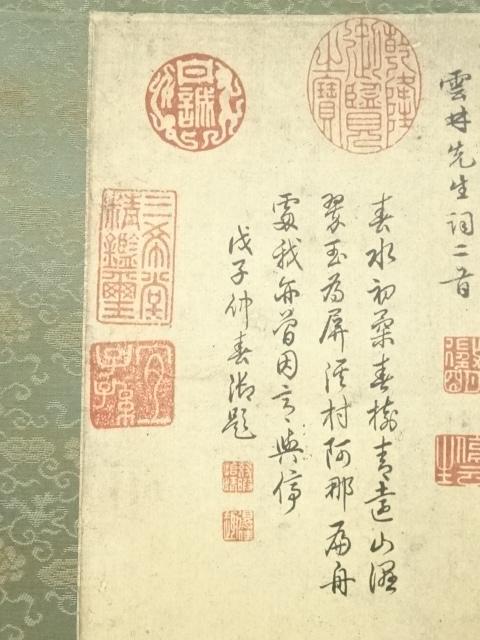 雲林先生詞二首
春水初柔春樹青遠山濕
翠玉為屏溪村阿那扁舟
處我亦曾因之與停
戊子仲春御題
乾隆御覽之寶
三希堂精鑑璽
宜子孫